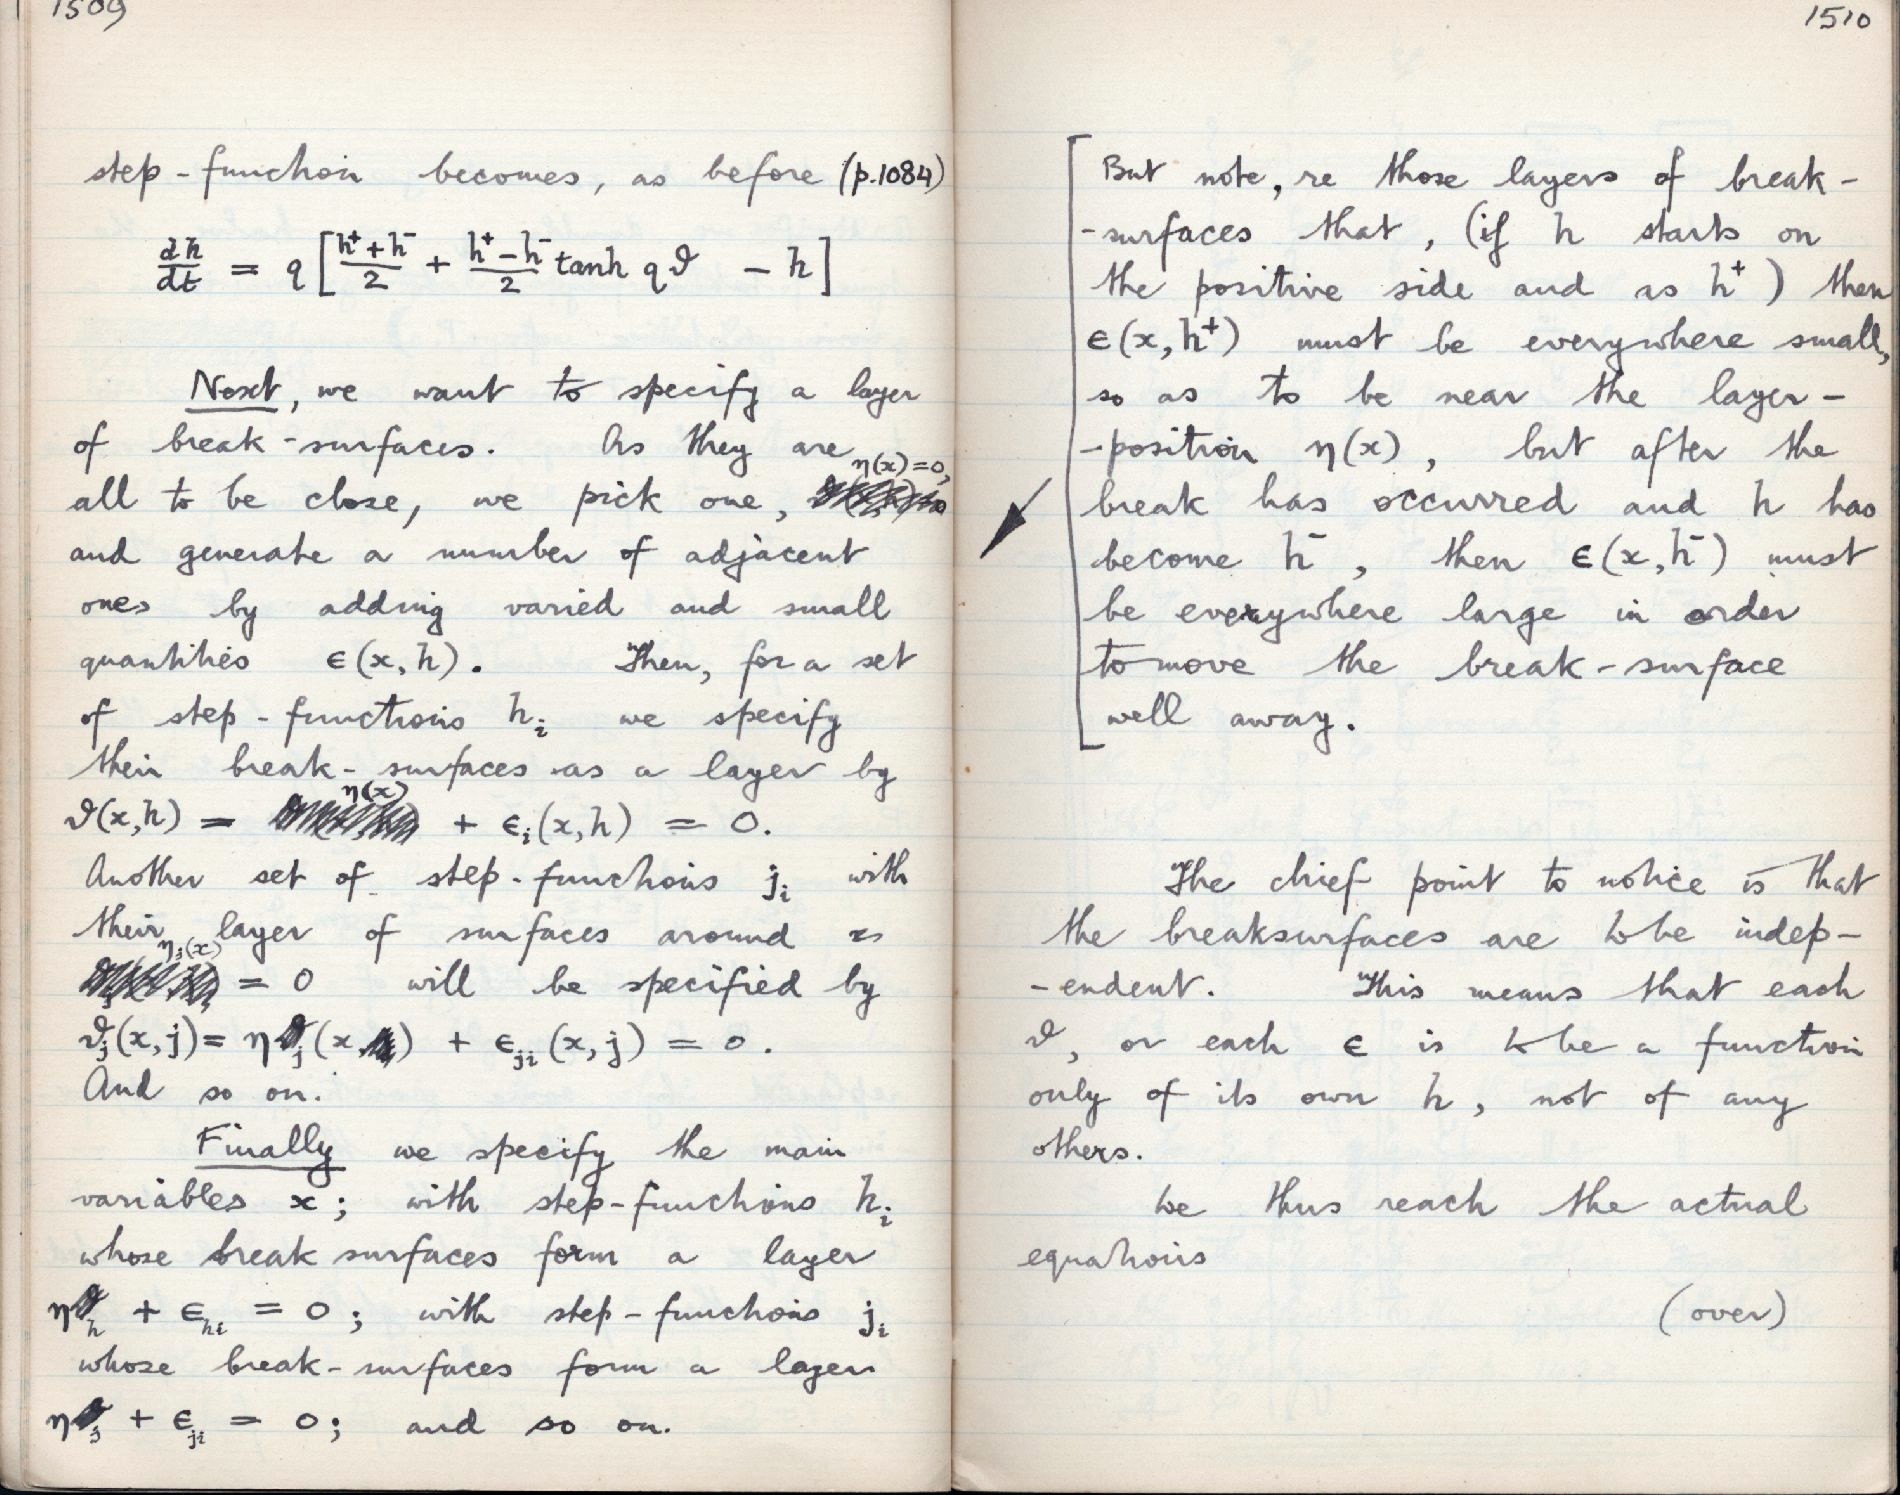 1509
step-function becomes, as before (p.1084)
dh/dt = q [ (h⁺ + h⁻)/2 + (h⁺ − h⁻)/2 tanh qϑ − h ]
Next, we want to specify a layer
of break-surfaces. As they are
all to be close, we pick one, η(x)=0,
and generate a number of adjacent
ones by adding varied and small
quantities ϵ(x,h). Then, for a set
of step-functions hᵢ we specify
their break-surfaces as a layer by
ϑ(x,h) = η(x) + ϵᵢ(x,h) = 0.
Another set of step-functions jᵢ with
their layer of surfaces around
ηⱼ(x) = 0 will be specified by
ϑⱼ(x,j) = ηⱼ(x) + ϵⱼᵢ(x,j) = 0.
And so on.
Finally we specify the main
variables x; with step-functions hᵢ
whose break surfaces form a layer
η_h + ϵ_hi = 0; with step-functions jᵢ
whose break-surfaces form a layer
ηⱼ + ϵⱼᵢ = 0; and so on.
1510
But note, re those layers of break-
-surfaces that, (if h starts on
the positive side and as h⁺) then
ϵ(x,h⁺) must be everywhere small,
so as to be near the layer-
-position η(x), but after the
break has occurred and h has
become h⁻, then ϵ(x,h⁻) must
be everywhere large in order
to move the break-surface
well away.
The chief point to notice is that
the breaksurfaces are to be indep-
-endent. This means that each
ϑ, or each ϵ is to be a function
only of its own h, not of any
others.
We thus reach the actual
equations
(over)